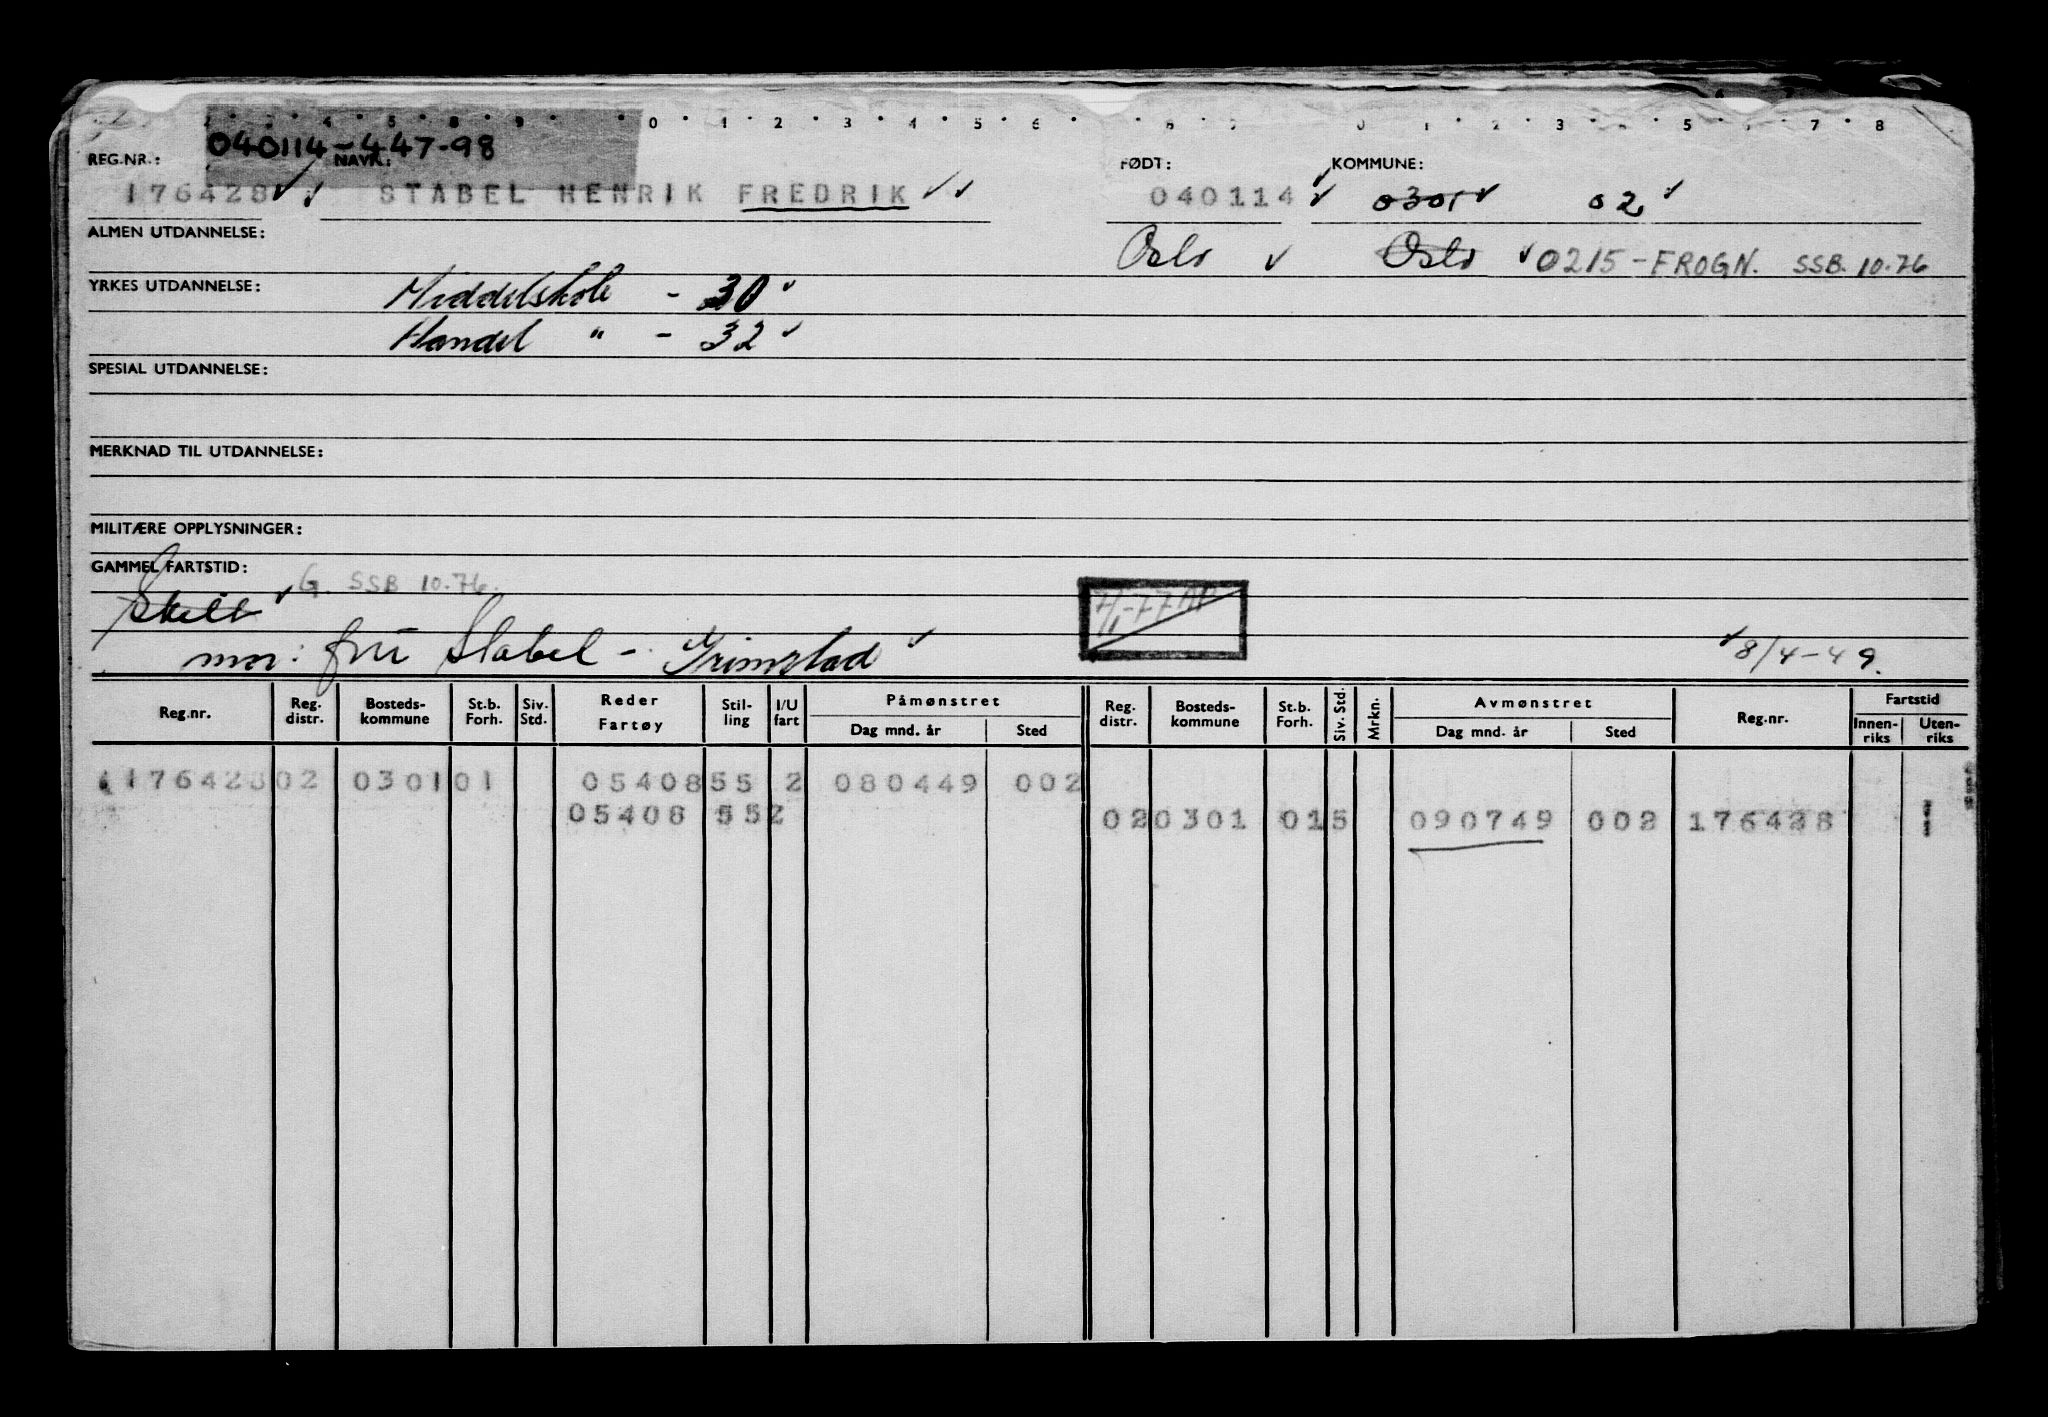 040114-447-98
REG.NR.: NAVN: FØDT: KOMMUNE:
176428 STABEL HENRIK FREDRIK 040114 0301 02
ALMEN UTDANNELSE: Oslo Oslo 0215-FROGN. SSB. 10.76
YRKES UTDANNELSE: Middelskole - 30
Handel " - 32
SPESIAL UTDANNELSE:
MERKNAD TIL UTDANNELSE:
MILITÆRE OPPLYSNINGER:
GAMMEL FARTSTID:
G. SSB 10.76.
mor: fru Stabel - Grimstad 8/4-49.
Reg.nr. Reg. distr. Bosteds-kommune St.b. Forh. Siv. Std. Reder Fartøy Stil-ling I/U fart Påmønstret Dag mnd. år Sted Reg. distr. Bosteds-kommune St.b. Forh. Siv. Std. Mrkn. Avmønstret Dag mnd. år Sted Reg.nr. Fartstid Innen-riks Uten-riks
176428 02 0301 01 05408 55 2 080449 002
05408 55 2 02 0301 01 5 090749 002 176428